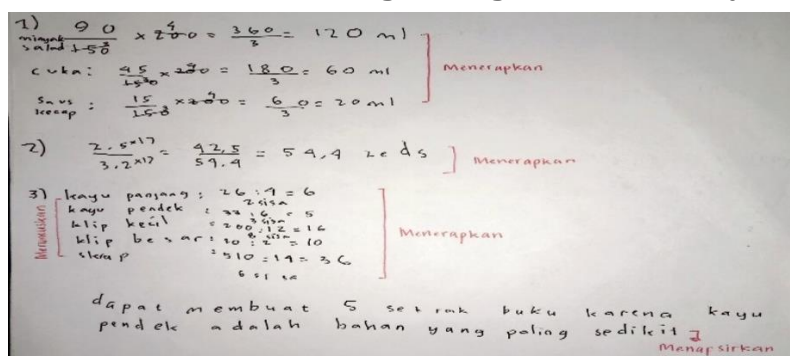 1) minyak salad 90/150 x 200 = 360/3 = 120 ml
cuka: 45/150 x 200 = 180/3 = 60 ml
Menerapkan
saus kecap : 15/150 x 200 = 60/3 = 20 ml
2) 2.5x17/3.2x17 = 42,5/54.4 = 54,4 zeds
Menerapkan
3) kayu panjang : 26 : 4 = 6
2 sisa
kayu pendek : 33 : 6 = 5
3 sisa
klip kecil = 200 : 12 = 16
8 sisa
Menerapkan
klip besar : 20 : 2 = 10
: 510 : 14 = 36
6 sisa
Merumuskan
dapat membuat 5 set rak buku karena kayu
pendek adalah bahan yang paling sedikit
Menafsirkan